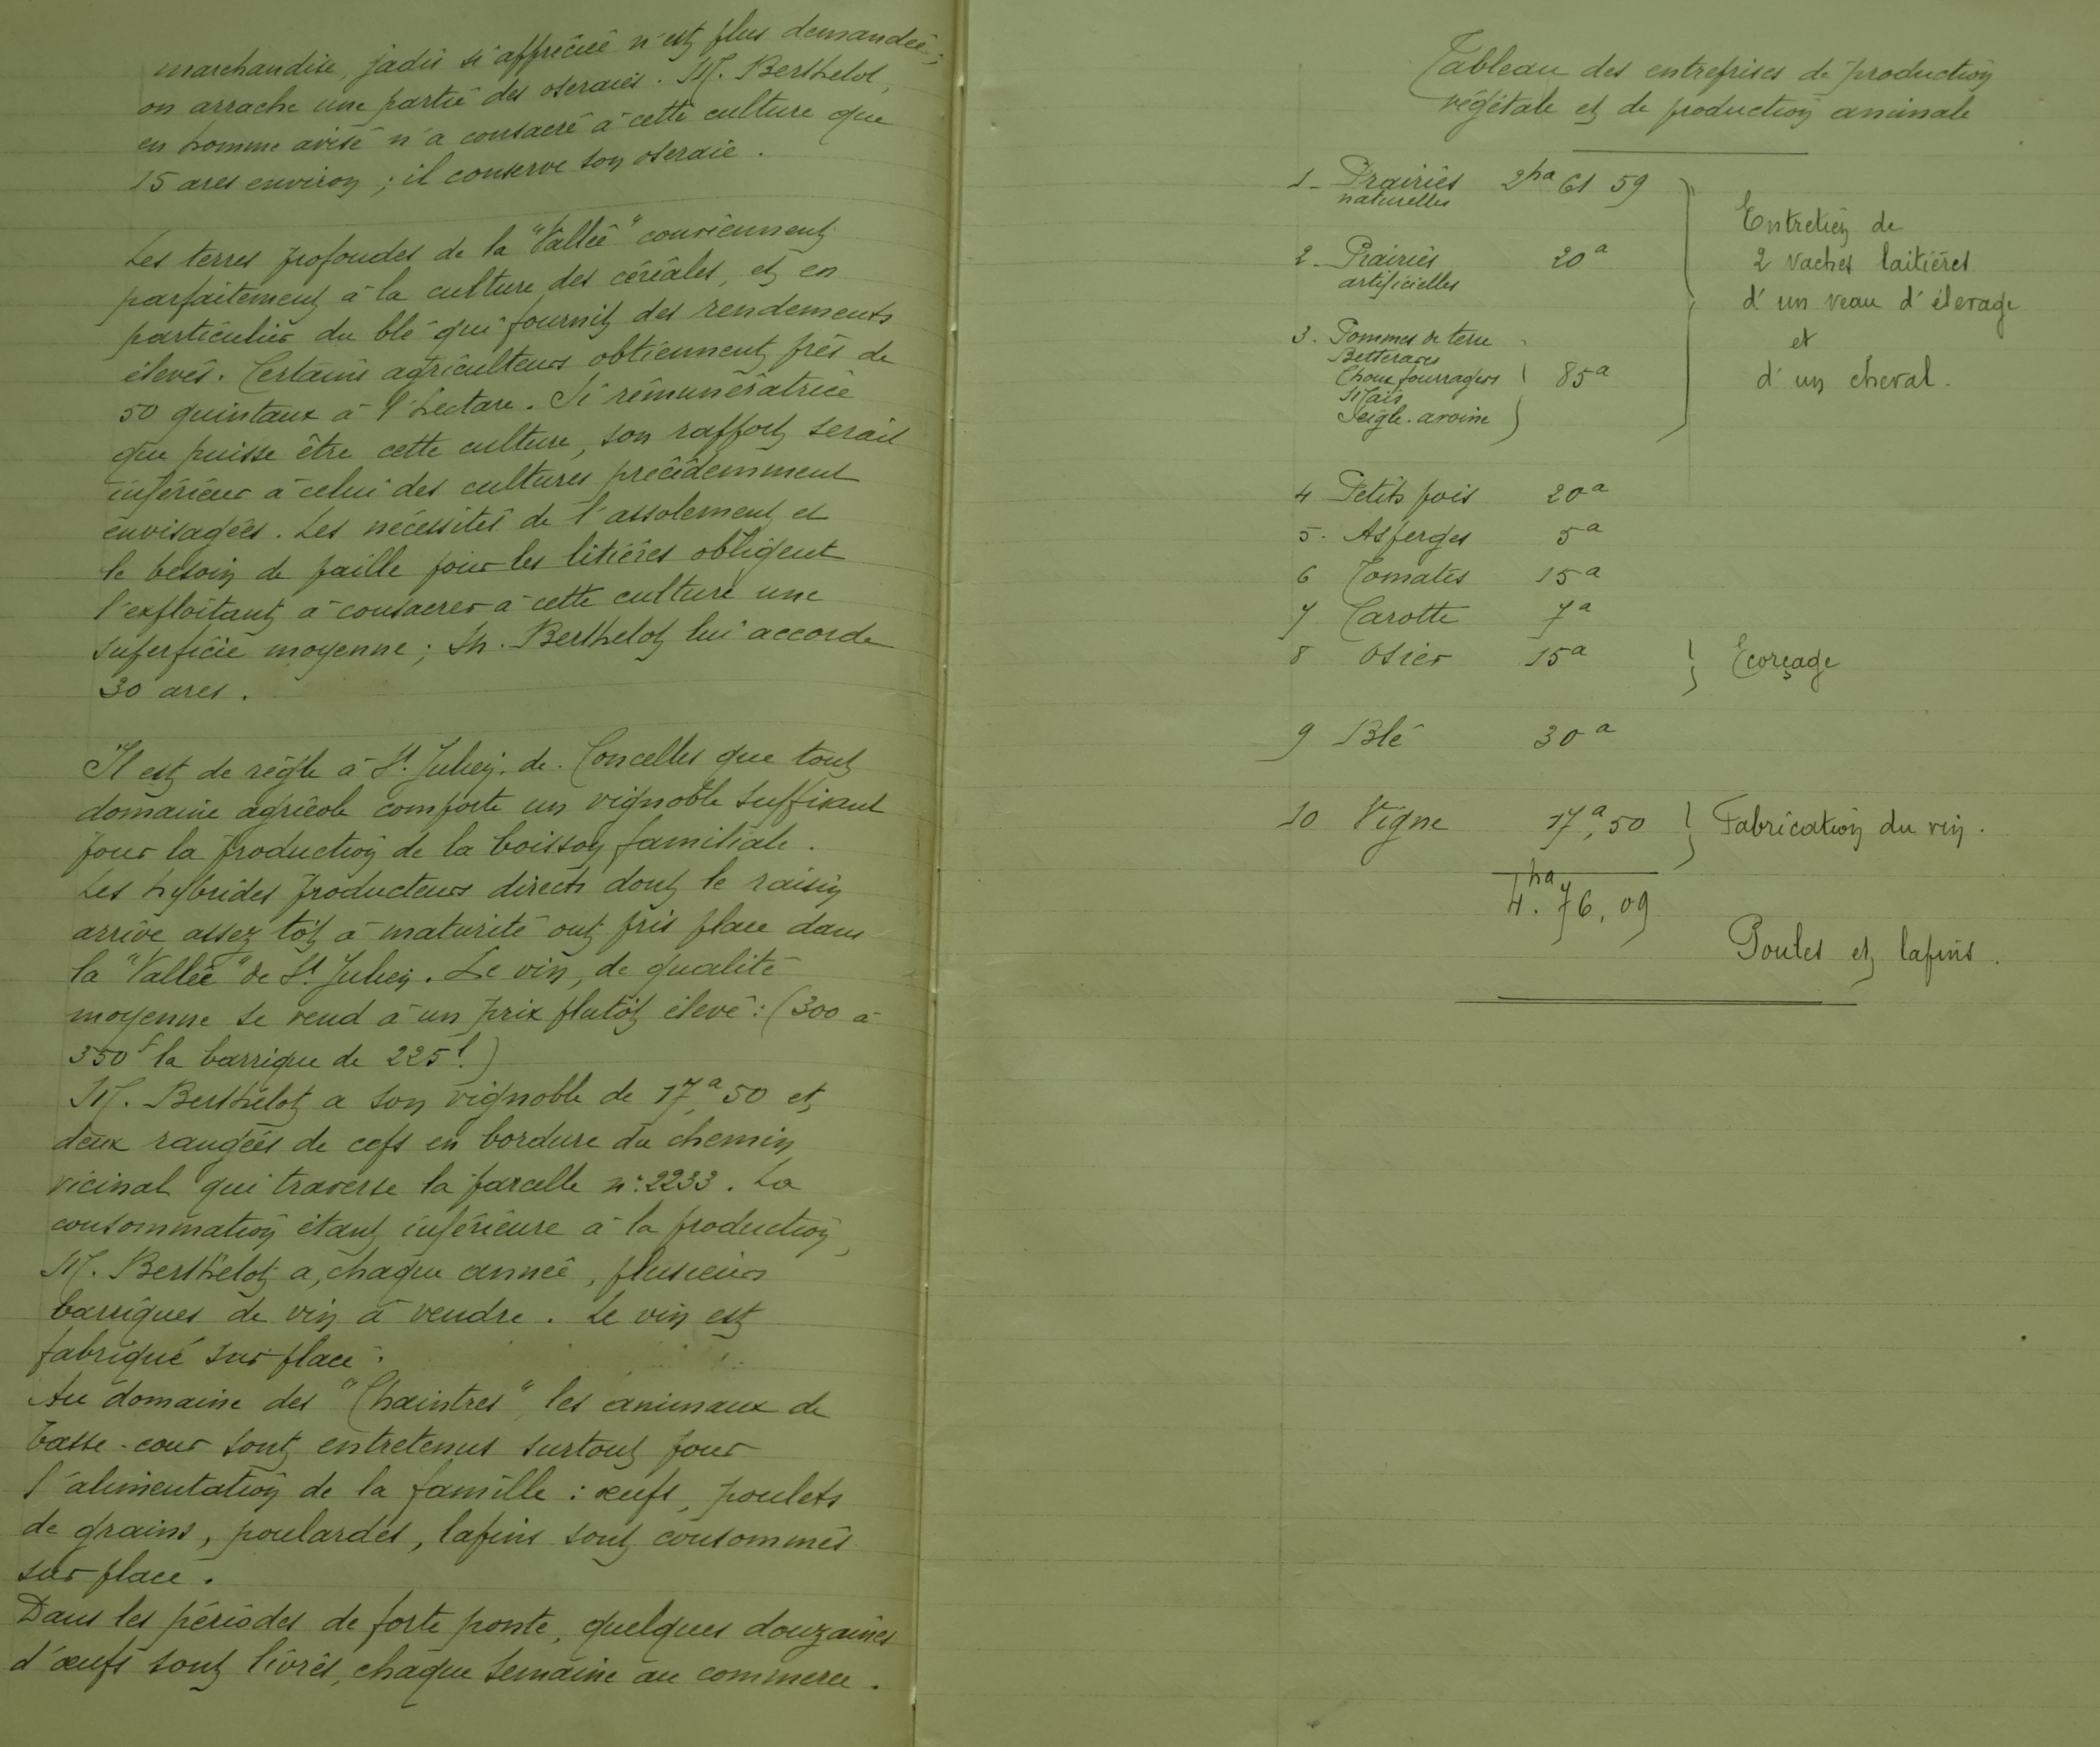 marchandise, jadis si appréciée n'est plus demandée;
on arrache une partie des oseraies. M. Berthelot,
en homme avisé n'a consacré à cette culture que
15 ares environ ; il conserve son oseraie.
Les terres profondes de la "Vallée" conviennent
parfaitement à la culture des céréales, et en
particulier du blé qui fournit des rendements
élevés. Certains agriculteurs obtiennent près de
50 quintaux à l'hectare. Si rémunératrice
que puisse être cette culture, son rapport serait
inférieur à celui des cultures précédemment
envisagées. Les nécessités de l'assolement et
le besoin de paille pour les litières obligent
l'exploitant à consacrer à cette culture une
superficie moyenne ; M. Berthelot lui accorde
30 ares.
Il est de règle à St Julien-de-Concelles que tout
domaine agricole comporte un vignoble suffisant
pour la production de la boisson familiale.
Les hybrides producteurs directs dont le raisin
arrive assez tôt à maturité ont pris place dans
la "Vallée" de St Julien. Le vin, de qualité
moyenne se vend à un prix plutôt élevé : (300 à
350f la barrique de 225l.)
M. Berthelot a son vignoble de 17a,50 et
deux rangées de ceps en bordure du chemin
vicinal qui traverse la parcelle n° 2233. La
consommation étant inférieure à la production,
M. Berthelot a, chaque année, plusieurs
barriques de vin à vendre. Le vin est
fabriqué sur place.
Au domaine des "Chaintres" les animaux de
basse-cour sont entretenus surtout pour
l'alimentation de la famille : œufs, poulets
de grains, poulardes, lapins sont consommés
sur place.
Dans les périodes de forte ponte, quelques douzaines
d'œufs sont livrés, chaque semaine au commerce.
Tableau des entreprises de production
végétale et de production animale
1- Prairies naturelles 2ha 61 59
2- Prairies artificielles 20a
3. Pommes de terre
Betteraves
Choux fourragers 85a
Maïs
Seigle-avoine
Entretien de
2 vaches laitières
d'un veau d'élevage
et
d'un cheval.
4 Petits pois 20a
5. Asperges 5a
6 Tomates 15a
7 Carotte 7a
8 Osier 15a } Ecorçage
9 Blé 30a
10 Vigne 17a,50 } Fabrication du vin.
4ha.76,09
Poules et lapins.